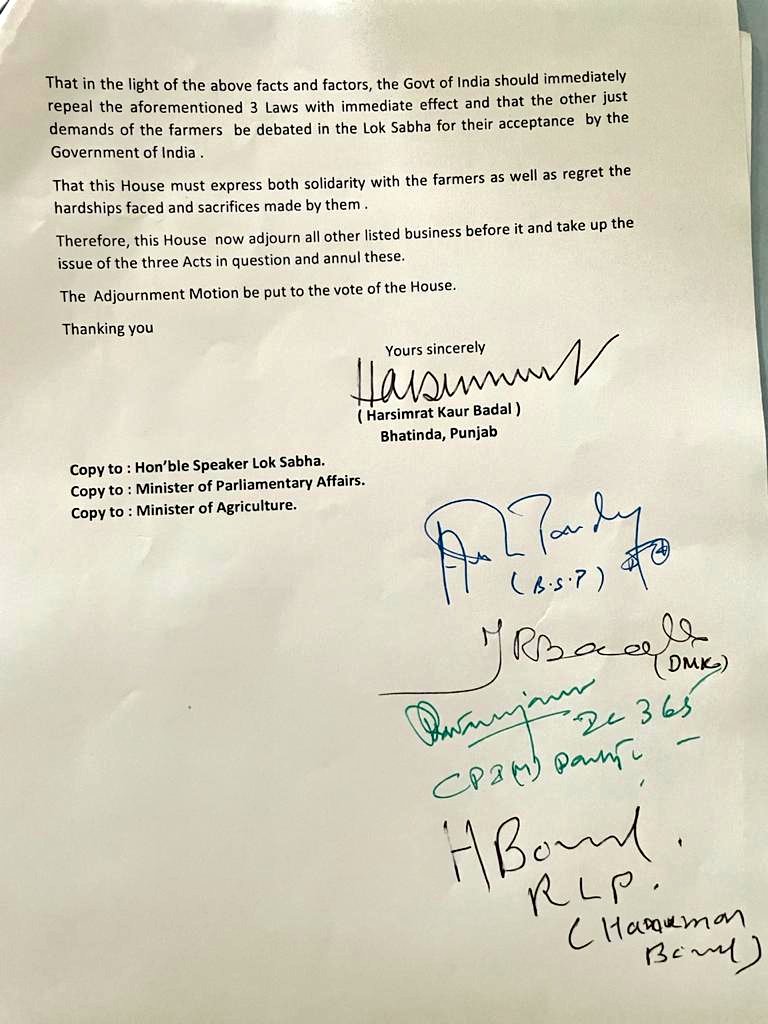 That in the light of the above facts and factors, the Govt of India should immediately
repeal the aforementioned 3 Laws with immediate effect and that the other just
demands of the farmers be debated in the Lok Sabha for their acceptance by the
Government of India .
That this House must express both solidarity with the farmers as well as regret the
hardships faced and sacrifices made by them .
Therefore, this House now adjourn all other listed business before it and take up the
issue of the three Acts in question and annul these.
The Adjournment Motion be put to the vote of the House.
Thanking you
Yours sincerely
Harsimrat
( Harsimrat Kaur Badal )
Bhatinda, Punjab
Copy to : Hon'ble Speaker Lok Sabha.
Copy to : Minister of Parliamentary Affairs.
Copy to : Minister of Agriculture.
(B.S.P)
TRBaalu
(DMK)
365
CPI(M)
HBeniwal.
RLP.
(Hanuman
Beniwal)